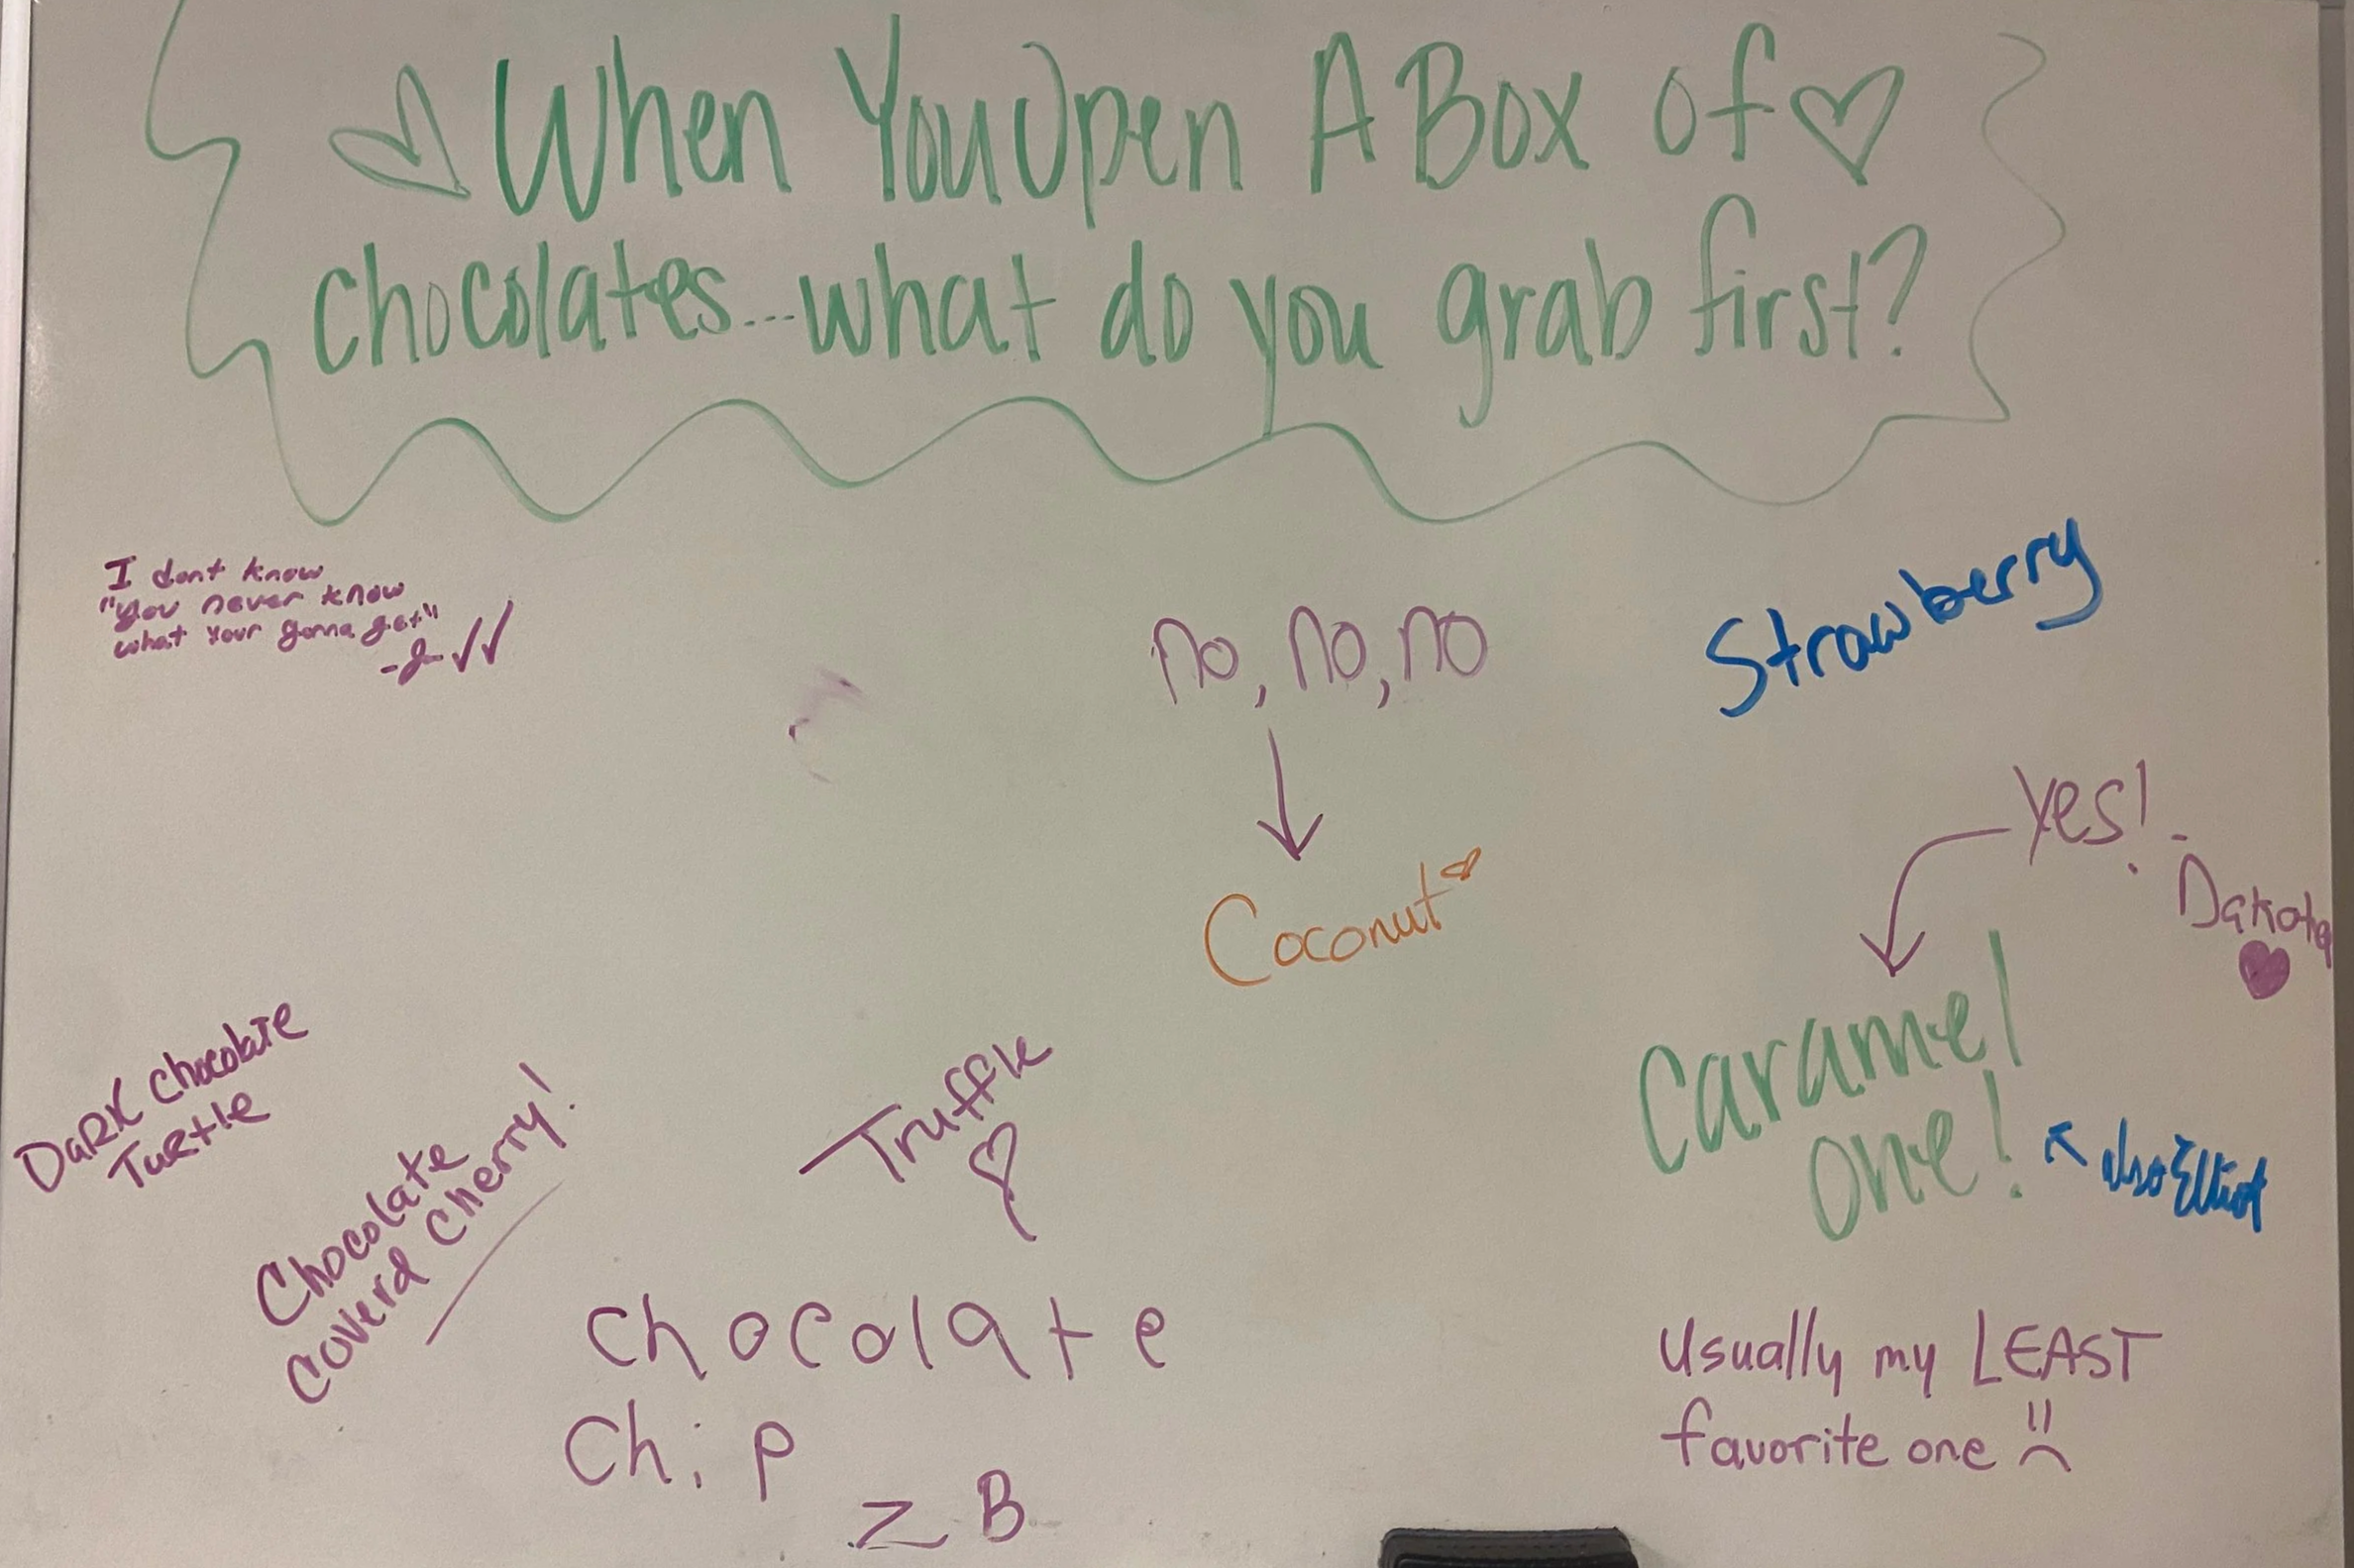 When You Open A Box of
chocolates...what do you grab first?
I dont know
"you never know
what your gonna get"
no, no, no
Coconut
Strawberry
Yes! -
Dakota
Caramel
one!
also Elliot
Usually my LEAST
favorite one
DaRK Chocolate
TuRtle
Chocolate
Coverd Cherry!
Truffle
chocolate
Chip
ZB